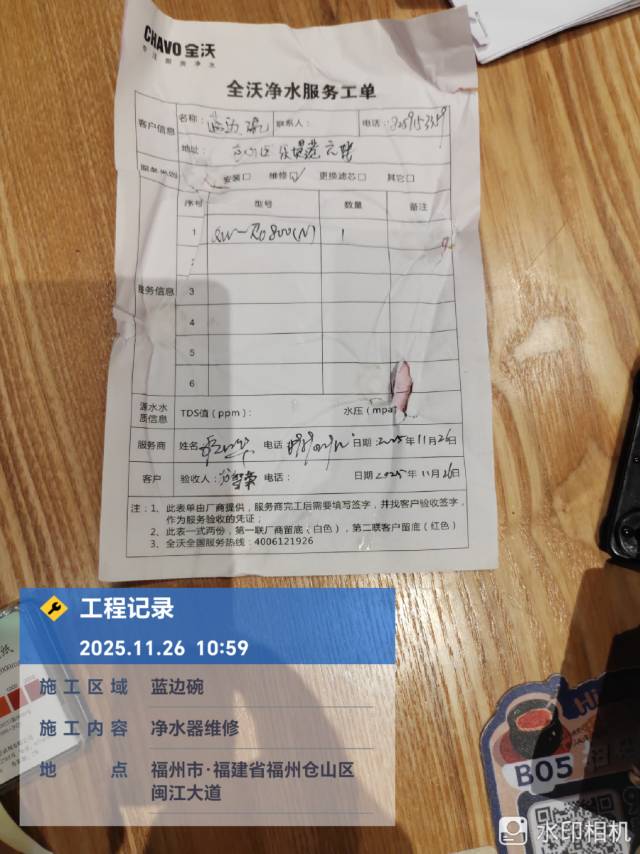 CHAVO 全沃
专注厨房净水
全沃净水服务工单
客户信息 名称：蓝边碗 联系人： 电话：
地址：仓山区
服务类别 安装□ 维修☑ 更换滤芯□ 其它□
序号 型号 数量 备注
1 QW-RO800(N) 1
2
服务信息 3
4
5
6
源水水质信息 TDS值（ppm）： 水压（mpa）
服务商 姓名： 电话 日期：2025年11月26日
客户 验收人： 电话： 日期2025年11月26日
注：1、此表单由厂商提供，服务商完工后需要填写签字，并找客户验收签字，
作为服务验收的凭证；
2、此表一式两份，第一联厂商留底（白色），第二联客户留底（红色）
3、全沃全国服务热线：4006121926
工程记录
2025.11.26 10:59
施工区域 蓝边碗
施工内容 净水器维修
地点 福州市·福建省福州仓山区
闽江大道
Hi
B05
水印相机